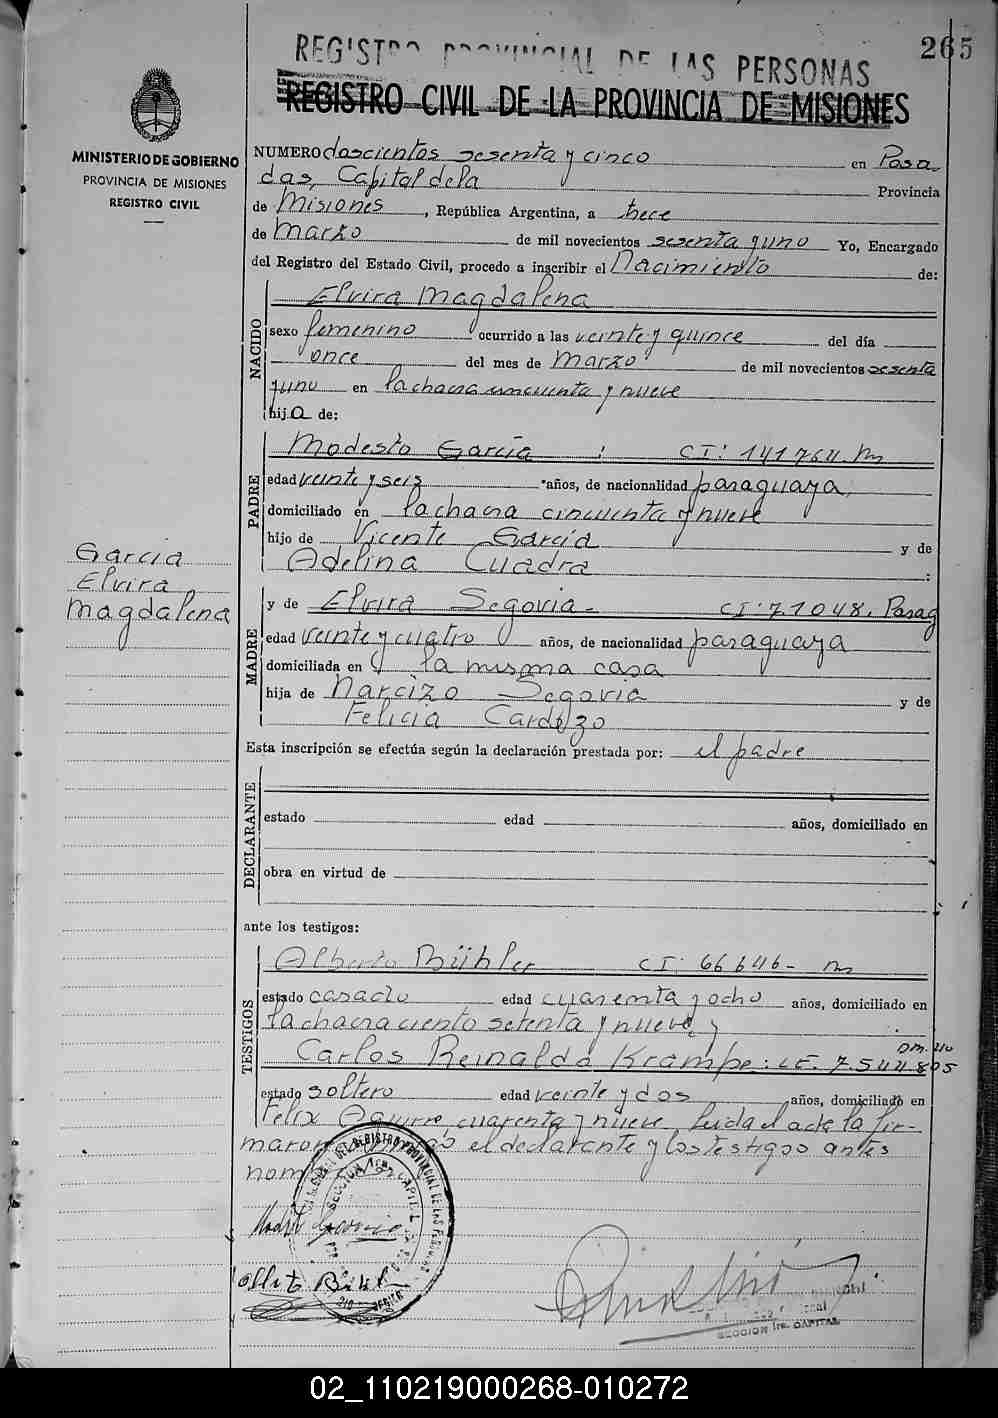 265
REGISTRO PROVINCIAL DE LAS PERSONAS
REGISTRO CIVIL DE LA PROVINCIA DE MISIONES
MINISTERIO DE GOBIERNO
PROVINCIA DE MISIONES
REGISTRO CIVIL
NUMERO doscientos sesenta y cinco en Posa-
das, Capital de la Provincia
de Misiones, República Argentina, a trece
de Marzo de mil novecientos sesenta y uno Yo, Encargado
del Registro del Estado Civil, procedo a inscribir el Nacimiento de:
NACIDO
Elvira Magdalena
sexo femenino ocurrido a las veinte y quince del día
once del mes de Marzo de mil novecientos sesenta
y uno en la chacra cincuenta y nueve
hija de:
PADRE
Modesto García CI: 141764. M
edad veinte y seis años, de nacionalidad paraguaya
domiciliado en la chacra cincuenta y nueve
hijo de Vicente García y de
Adelina Cuadra
García
Elvira
Magdalena
MADRE
y de Elvira Segovia- CI: 71048. Parag
edad veinte y cuatro años, de nacionalidad paraguaya
domiciliada en la misma casa
hija de Narcizo Segovia y de
Felicia Cardozo
Esta inscripción se efectúa según la declaración prestada por: el padre
DECLARANTE
estado edad años, domiciliado en
obra en virtud de
ante los testigos:
TESTIGOS
Alberto Bühler CI: 66646- M
estado casado edad cuarenta y ocho años, domiciliado en
la chacra ciento setenta y nueve, y
Carlos Reinaldo Krampe: LE. 7.544.805
DM.
estado soltero edad veinte y dos años, domiciliado en
Felix Aguirre cuarenta y nueve Leida el acta la fir-
maron el declarante y los testigos antes
nom
SECCION 1ra. CAPITAL
02_110219000268-010272